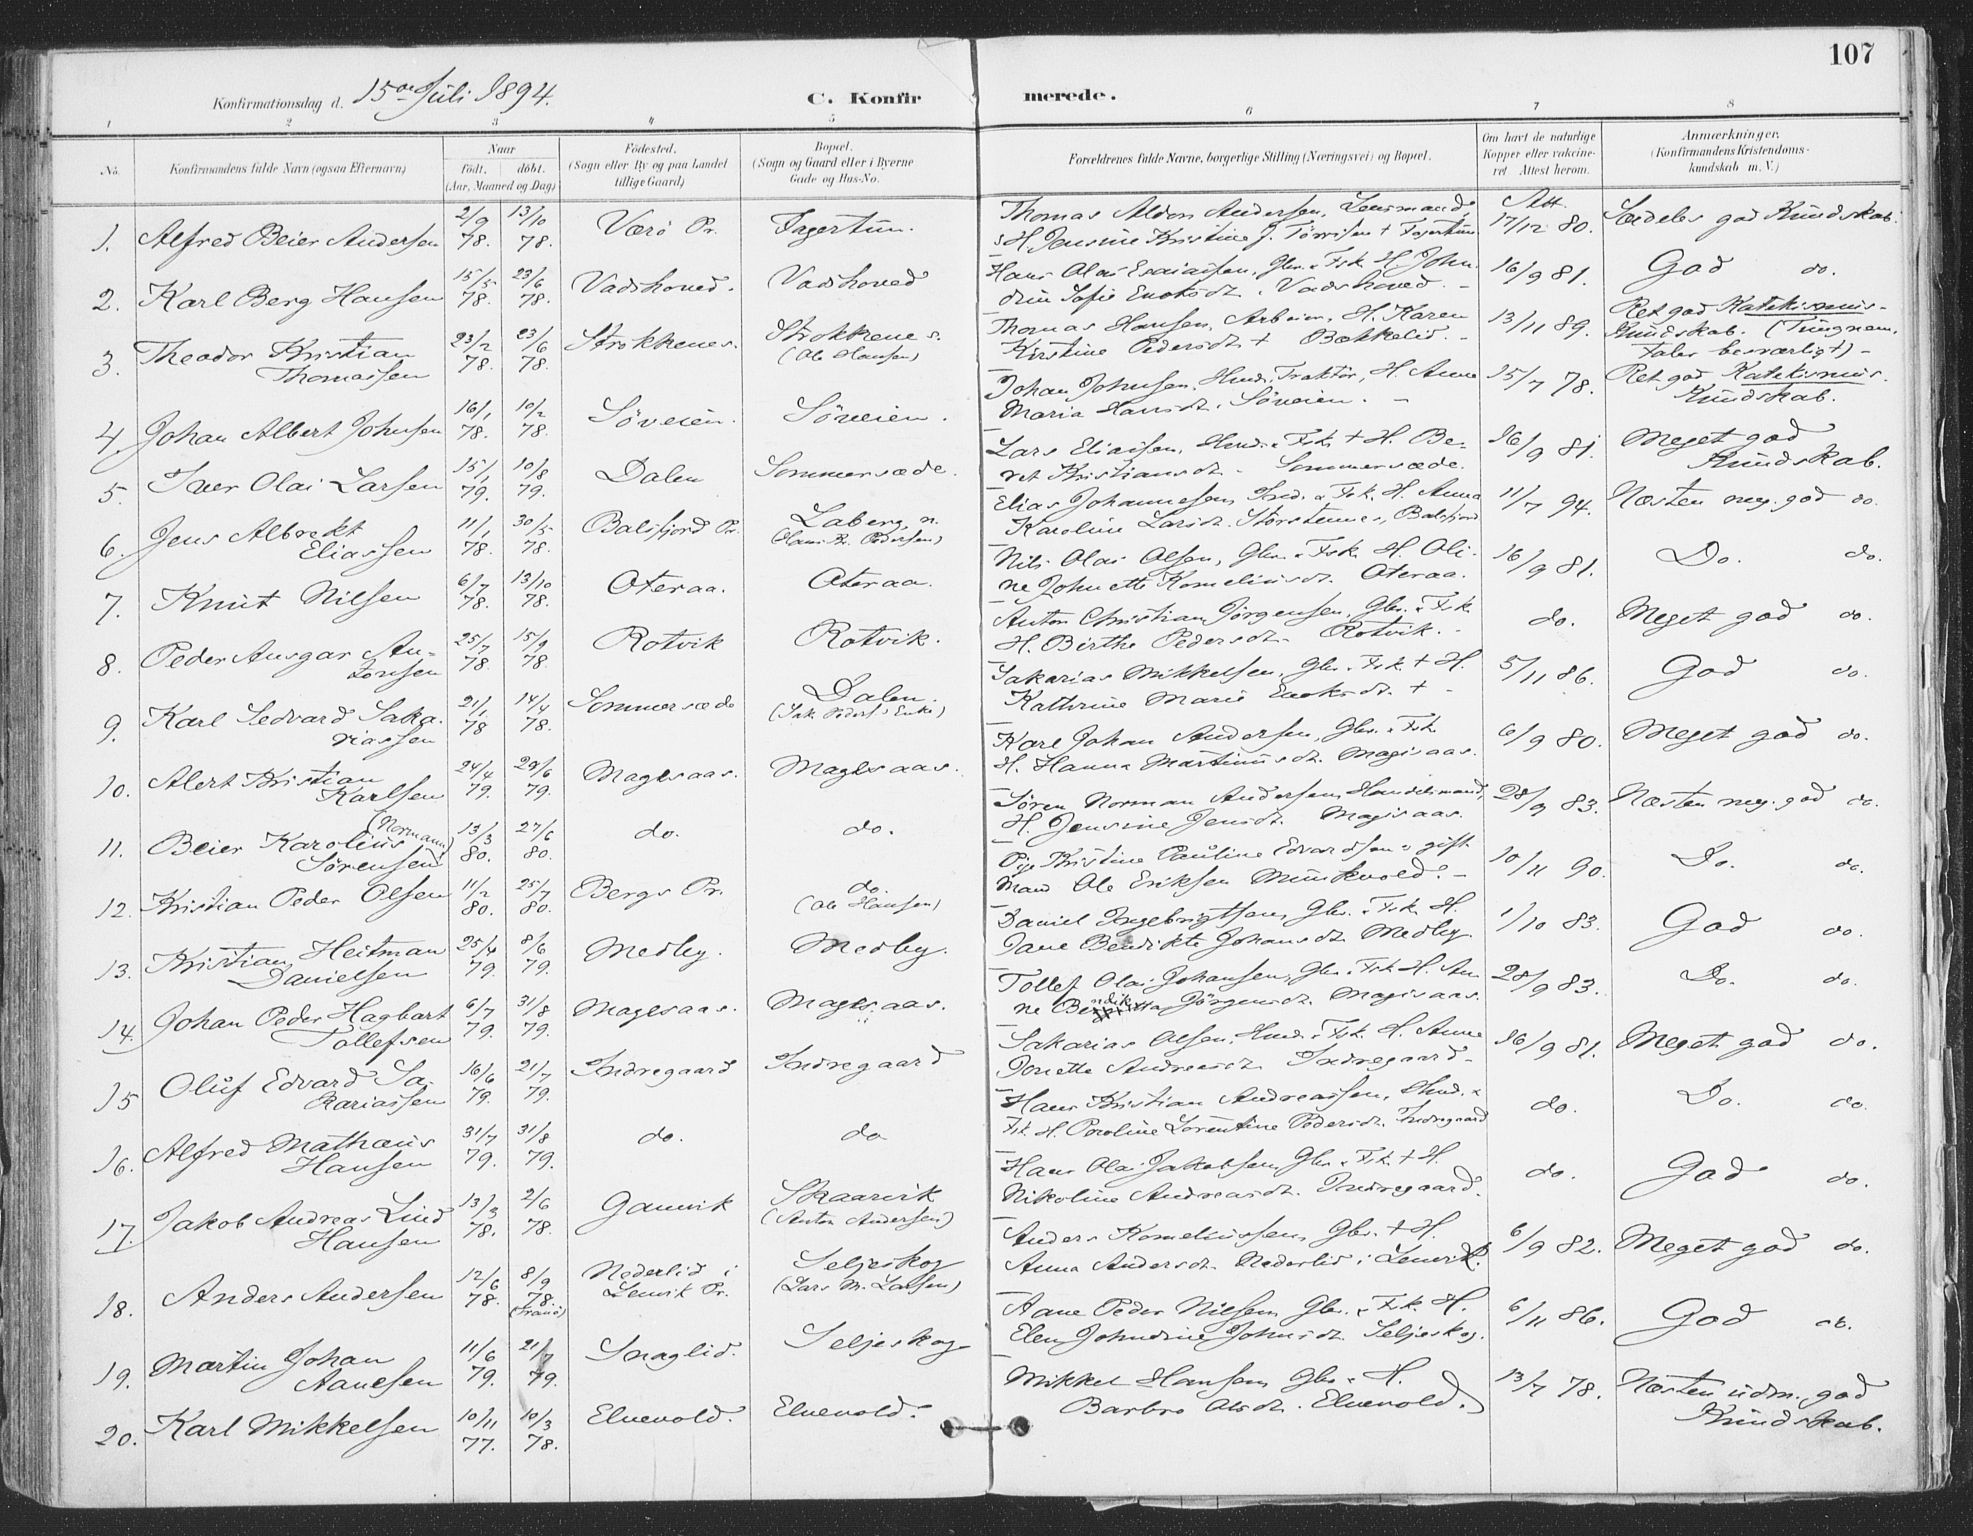 107
Konfirmationsdag d. 15de Juli 1894.
C. Konfirmerede.
1 2 3 4 5 6 7 8
No. Konfirmandens fulde Navn (ogsaa Efternavn) Naar født. døbt. (Aar, Maaned og Dag) Fødested. (Sogn eller By og paa Landet tillige Gaard) Bopæl. (Sogn og Gaard eller i Byerne Gade og Hus-No. Forældrenes fulde Navne, borgerlige Stilling (Næringsvei) og Bopæl. Om havt de naturlige Kopper eller vaccineret. Attest herom. Anmærkninger. (Konfirmandens Kristendomskundskab m. V.)
1. Alfred Beier Andersen 2/9 78. 13/10 78. Værø Pr. Fagertun. Thomas Aldon Andersen, Lensmand, H. Jensine Kristine J. Tørrisen + Fagertun Att. 17/12 80. Særdeles god Kundskab.
2. Karl Berg Hansen 15/5 78. 23/6 78. Vadshoved. Vadshoved Hans Olai Esaiassen, Gbr. & Fsk. H. Johndine Sofie Enoksdt. Vadshoved. 16/9 81. God do.
3. Theodor Kristian Thomassen 23/2 78. 23/6 78. Strokkenes. Strokkenes. (Ole Hansen) Thomas Hansen, Arbeider, H. Karen Kirstine Pedersdt + Bækkelid. 13/11 89. Ret god Katekismus-Kundskab. (Tungnem, taler besværligt)
4. Johan Albert Johnsen 16/1 78. 10/2 78. Søveien. Søveien. Johan Johnsen, Hmd., Traktør, H. Anne Maria Hansdt. Søveien. 15/7 78. Ret god Katekismus. Kundskab.
5. Iver Olai Larsen 15/1 79. 10/8 79. Dalen Sommersæde. Lars Eliassen, Hmd. & Fsk + H. Beret Kristiansdt. Sommersæde. 16/9 81. Meget god Kundskab.
6. Jens Albrekt Eliassen 11/1 78. 30/5 78. Balsfjord Pr. Laberg n. (Hans P. Pedersen) Elias Johannesen, Ind. & Fsk. H. Anna Karoline Larsdt. Storstennes, Balsfjord 11/7 94. Næsten meg. god do.
7. Knut Nilsen 6/7 78. 13/10 78. Oteraa. Oteraa. Nils Olai Olsen, Gbr. & Fsk. H. Oline Johnette Korneliusdt. Oteraa. 16/9 81. Do. do.
8. Peder Ansgar Antonsen 25/7 78. 15/9 78. Rotvik Rotvik. Anton Christian Jørgensen, Gbr. & Fsk. H. Birthe Pedersdt. Rotvik. do. Meget god do.
9. Karl Sedvard Sakariassen 21/1 78 14/4 78. Sommersæde Dalen. (Isak Peders. Enke) Sakarias Mikkelsen, Gbr. & Fsk. + H. Kathrine Marie Enoksdt. + 5/11 86. God do.
10. Alert Kristian Karlsen 24/4 79. 29/6 79. Magesaas. Magesaas. Karl Johan Andersen, Gbr. & Fsk. H. Hanna Martinusdt. Magesaas. 6/9 80. Meget god do.
11. Beier Karolius (Normann) Sørensen 13/3 80. 27/6 80. do. do. Søren Norman Andersen, Handelsmand, H. Jensine Jensdt. Magesaas. 28/9 83. Næsten meg. god do.
12. Kristian Peder Olsen 11/2 80. 25/7 80. Bergs Pr. do. (Ole Hansen) Pige Kristine Pauline Edvardsen & gift Mand Ole Eriksen Munkvold. 10/11 90. Do. do.
13. Kristian Heitman Danielsen 25/4 79. 8/6 79. Medby. Medby. Daniel Ingebrigtsen, Gbr. & Fsk. H. Jane Bendikte Johansdt. Medby. 1/10 83. God do.
14. Johan Peder Hagbart Tollefsen 6/7 79. 31/8 79. Magesaas. Magesaas. Tollef Olai Johansen, Gbr. & Fsk. H. Anne Bendikta Jørgensdt. Magesaas. 28/9 83. Do. do.
15 Oluf Edvard Sakariassen 16/6 79. 21/7 79. Indregaard Indregaard Sakarias Olsen, Hmd. & Fsk. H. Anne Jonette Andreasdt. Indregaard 16/9 81. Meget god do.
16. Alfred Mathæus Hansen 31/7 79. 31/8 79. do. do Hans Kristian Andreassen, Hmd. & Fsk. H. Poroline Lorentine Pedersdt. Indregaard do. Do. do.
17. Jakob Andreas Lind Hansen 13/3 78. 2/6 78. Gamvik Skaarvik (Anton Andersen) Hans Olai Jakobsen, Gbr. & Fsk. + H. Nikoline Andreasdt. Indregaard. do. God do.
18. Anders Andersen 12/6 78. 8/9 78. (Tranø) Nederlid i Lenvik Pr. Seljeskog (Lars M. Larsen) Anders Korneliussen, Gbr. + H. Anna Andersdt. Nederlid i Lenvik. 6/9 82. Meget god do.
19. Martin Johan Aanesen 11/6 79. 21/7 79. Snaglid. Seljeskog Aane Peder Nilsen, Gbr. & Fsk. H. Elen Johndine Johnsdt. Seljeskog. 6/11 86. God do.
20. Karl Mikkelsen 10/11 77. 10/3 78. Elvevold. Elvevold. Mikkel Hansen, Gbr. & H. Barbro Olsdt. Elvevold. 13/7 78. Næsten udm. god Kundskab.